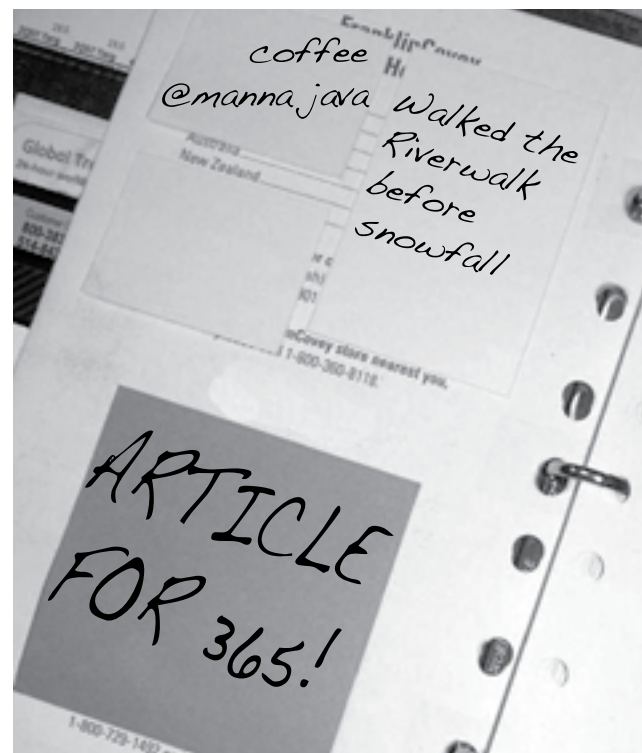 FranklinCovey
coffee
@manna java
Walked the
Riverwalk
before
snowfall
Australia
New Zealand
Global
store nearest you,
1-800-360-8118.
ARTICLE
FOR 365!